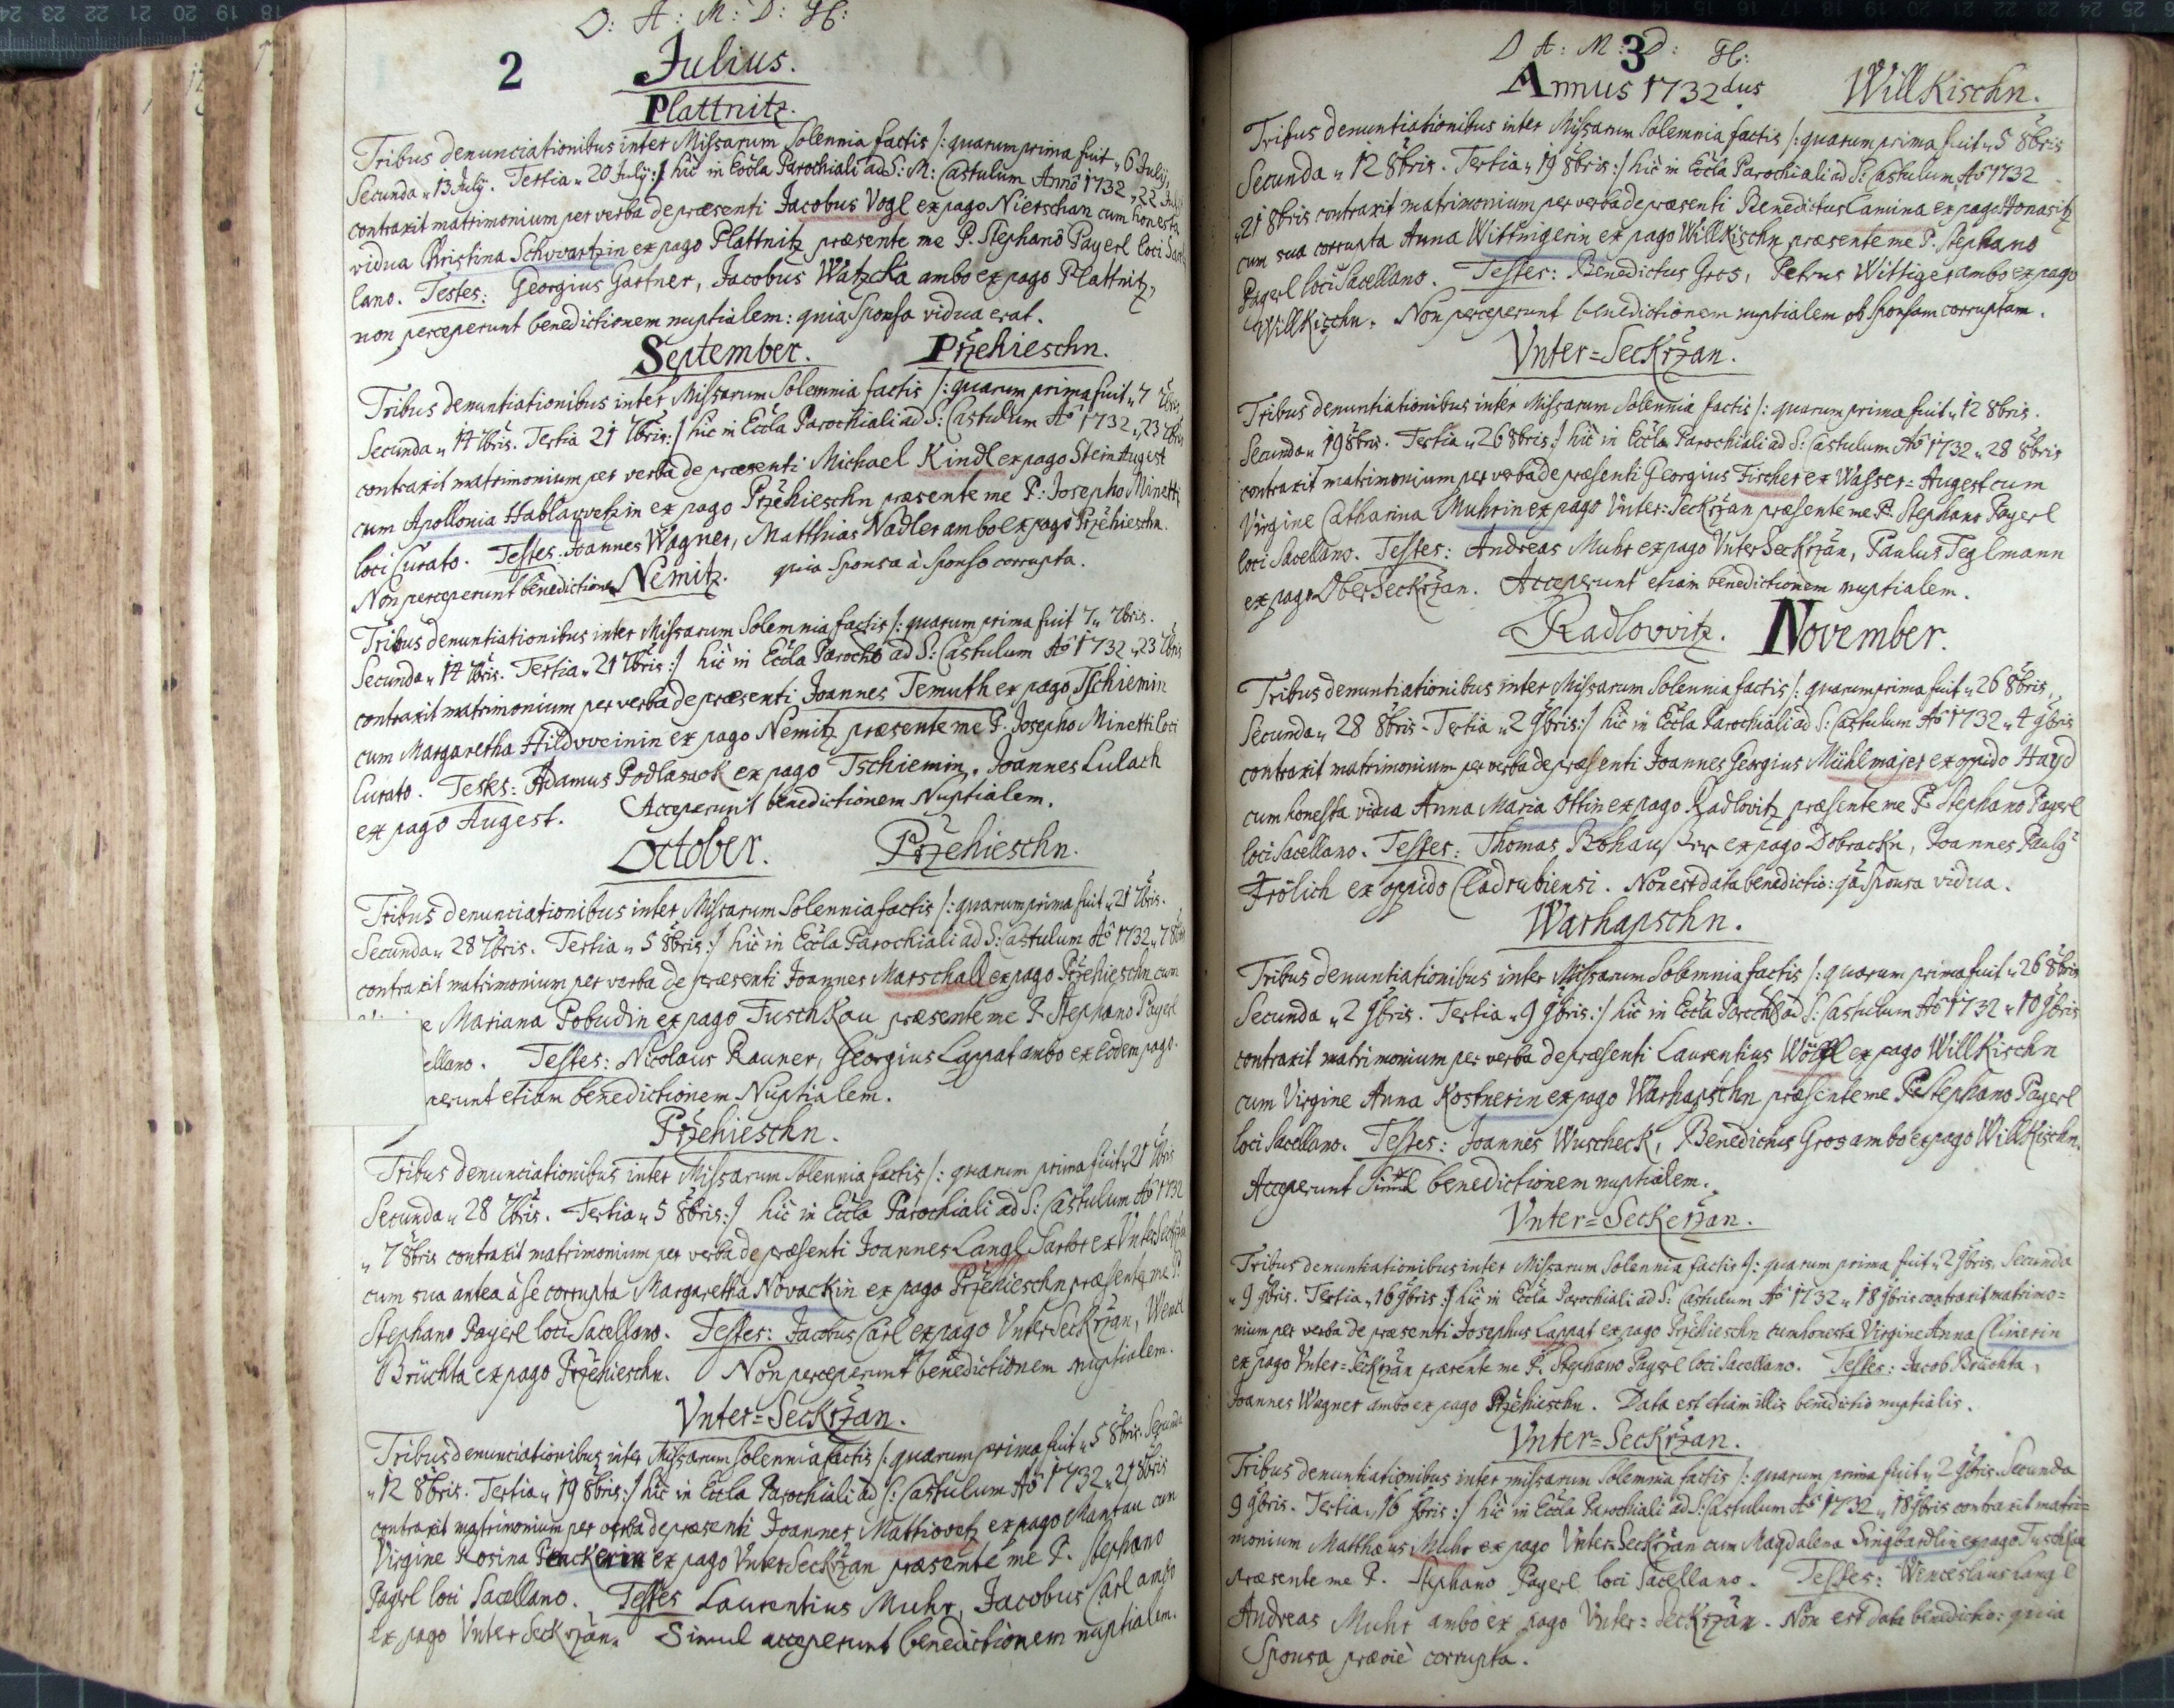 O: A: M: D: Gl:
2
Julius.
Plattnitz.
Tribus denunciationibus inter Missarum Solennia factis /: quarum prima fuit „ 6 July,
Secunda „ 13 July. Tertia „ 20 July :/ hic in Eccla Parochiali ad S: M: Castulum Anno 1732 „ 22 July
contraxit matrimonium per verba de præsenti Jacobus Vogl ex pago Nierschan cum honesta
vidua Christina Schwartzin ex pago Plattnitz præsente me P. Stephano Payerl loci Sacel
lano. Testes: Georgius Gartner, Jacobus Watzcka ambo ex pago Plattnitz,
non perceperunt benedictionem nuptialem: quia Sponsa vidua erat.
September. Przehieschn.
Tribus denuntiationibus inter Missarum Solemnia factis /: quarum prima fuit „ 7 7bris
Secunda „ 14 7bris. Tertia 21 7bris :/ hic in Eccla Parochiali ad S: Castulum Ao 1732 „ 23 7bris
contraxit matrimonium per verba de præsenti Michael Kindl ex pago Stein Augest
cum Apollonia Hablawetzin ex pago Przehieschn præsente me P: Josepho Minetti
loci Curato. Testes: Joannes Wagner, Matthias Nadler ambo ex pago Przehieschn.
Non perceperunt benedictione quia Sponsa à Sponso corrupta.
Nemitz.
Tribus denuntiationibus inter Missarum Solemnia factis /: quarum prima fuit 7 „ 7bris.
Secunda „ 14 7bris. Tertia „ 21 7bris :/ hic in Eccla Paroch ad S: Castulum Ao 1732 „ 23 7bris
contraxit matrimonium per verba de præsenti Joannes Temuth ex pago Tschiemin
cum Margaretha Hildweinin ex pago Nemitz præsente me P. Josepho Minetti Loci
Curato. Testes: Adamus Podlasack ex pago Tschiemin. Joannes Lulach
ex pago Augest. Acceperunt benedictionem Nuptialem.
October. Przehieschn.
Tribus denunciationibus inter Missarum Solennia factis /: quarum prima fuit „ 21 7bris.
Secunda „ 28 7bris. Tertia „ 5 8bris :/ hic in Eccla Parochiali ad S: Castulum Ao 1732 „ 7 8bris
contraxit matrimonium per verba de præsenti Joannes Marschall ex pago Przehieschn cum
e Mariana Pobudin ex pago Tuschkau præsente me P. Stephano Payerl
ellano. Testes: Nicolaus Rauner, Georgius Lappat ambo ex eodem pago.
perunt etiam benedictionem Nuptialem.
Przehieschn.
Tribus denunciationibus inter Missarum Solennia factis /: quarum prima fuit „ 21 7bris
Secunda „ 28 7bris. Tertia „ 5 8bris :/ hic in Eccla Parochiali ad S: Castulum Ao 1732
„ 7 8bris contraxit matrimonium per verba de præsenti Joannes Langl Sartor ex Unter Seckrzan
cum sua antea à se corrupta Margaretha Novackin ex pago Przehieschn præsente me P.
Stephano Payerl loci Sacellano. Testes: Jacobus Carl ex pago Unter Seckrzan, Wentl
Brüchta ex pago Przehieschn. Non perceperunt benedictionem nuptialem.
Vnter=Seckrzan.
Tribus denunciationibus inter Missarum Solennia factis /: quarum prima fuit „ 5 8bris. Secunda
„ 12 8bris. Tertia „ 19 8bris :/ hic in Eccla Parochiali ad S: Castulum Ao 1732 „ 21 8bris
contraxit matrimonium per verba de præsenti Joannes Mattiovetz ex pago Mantau cum
Virgine Rosina ex pago Vnter Seckrzan præsente me P. Stephano
Payerl loci Sacellano. Testes Laurentius Muhr, Jacobus Carl ambo
ex pago Vnter Seckrzan. Simul acceperunt benedictionem nuptialem.
O A: M: D: Gl:
3
Annus 1732dus Willkischn.
Tribus denuntiationibus inter Missarum Solemnia factis /: quarum prima fuit „ 5 8bris
Secunda „ 12 8bris. Tertia „ 19 8bris :/ hic in Eccla Parochiali ad S: Castulum Ao 1732
„ 21 8bris contraxit matrimonium per verba de præsenti Benedictus Camina ex pago Honasitz
cum sua corrupta Anna Wittingerin ex pago Willkischn præsente me P. Stephano
Payerl loci Sacellano. Testes: Benedictus Gros, Petrus Wittiger ambo ex pago
Willkischn. Non perceperunt benedictionem nuptialem ob Sponsam corruptam.
Vnter=Seckrzan.
Tribus denuntiationibus inter Missarum Solennia factis /: quarum prima fuit „ 12 8bris.
Secunda „ 19 8bris. Tertia „ 26 8bris :/ hic in Eccla Parochiali ad S: Castulum Ao 1732 „ 28 8bris
contraxit matrimonium per verba de præsenti Georgius Fischer ex Wasser=Augest cum
Virgine Catharina Muhrin ex pago Vnter=Seckrzan præsente me P. Stephano Payerl
loci Sacellano. Testes: Andreas Muhr ex pago Vnter Seckrzan, Paulus Teglmann
ex pago Ober Seckrzan. Acceperunt etiam benedictionem nuptialem.
Radlovvitz. November.
Tribus denuntiationibus inter Missarum Solennia factis /: quarum prima fuit „ 26 8bris,
Secunda „ 28 8bris. Tertia „ 2 9bris :/ hic in Eccla Parochiali ad S: Castulum Ao 1732 „ 4 9bris
contraxit matrimonium per verba de præsenti Joannes Georgius Mühlmajer ex oppido Hayd
cum honesta vidua Anna Maria Ottin ex pago Radlovitz præsente me P. Stephano Payerl
loci Sacellano. Testes: Thomas ex pago Dobrackn, Joannes Paulg
Frölich ex oppido Cladrubiensi. Non est data benedictio: qa Sponsa vidua.
Warhapschn.
Tribus denuntiationibus inter Missarum Solemnia factis /: quarum prima fuit „ 26 8bris
Secunda „ 2 9bris. Tertia „ 9 9bris :/ hic in Eccla Paroch ad S: Castulum Ao 1732 „ 10 9bris
contraxit matrimonium per verba de præsenti Laurentius ex pago Willkischn
cum Virgine Anna Kostnerin ex pago Warhapschn præsente me P. Stephano Payerl
loci Sacellano. Testes: Joannes Wuscheck, Benedictus Gros ambo ex pago Willkischn.
Acceperunt Simul benedictionem nuptialem.
Vnter=Seckerzan.
Tribus denuntiationibus inter Missarum Solennia factis /: quarum prima fuit „ 2 9bris. Secunda
„ 9 9bris. Tertia „ 16 9bris :/ hic in Eccla Parochiali ad S: Castulum Ao 1732 „ 18 9bris contraxit matrimo=
nium per verba de præsenti Josephus Lappat ex pago Przehieschn cum honesta Virgine Anna Climerin
ex pago Vnter=Seckrzan præsente me P. Stephano Payerl loci Sacellano. Testes: Jacob Brüchta,
Joannes Wagner ambo ex pago Przehieschn. Data est etiam illis benedictio nuptialis.
Vnter=Seckrzan.
Tribus denuntiationibus inter missarum Solemnia factis /: quarum prima fuit „ 2 9bris. Secunda
9 9bris. Tertia „ 16 9bris :/ hic in Eccla Parochiali ad S: Castulum Ao 1732 „ 18 9bris contraxit matri=
monium Matthæus Muhr ex pago Vnter=Seckrzan cum Magdalena Singbardlin ex pago Tuschkau
præsente me P. Stephano Payerl loci Sacellano. Testes: Wenceslaus Langl
Andreas Muhr ambo ex pago Vnter=Seckrzan. Non est data benedictio: quia
Sponsa prævie corrupta.